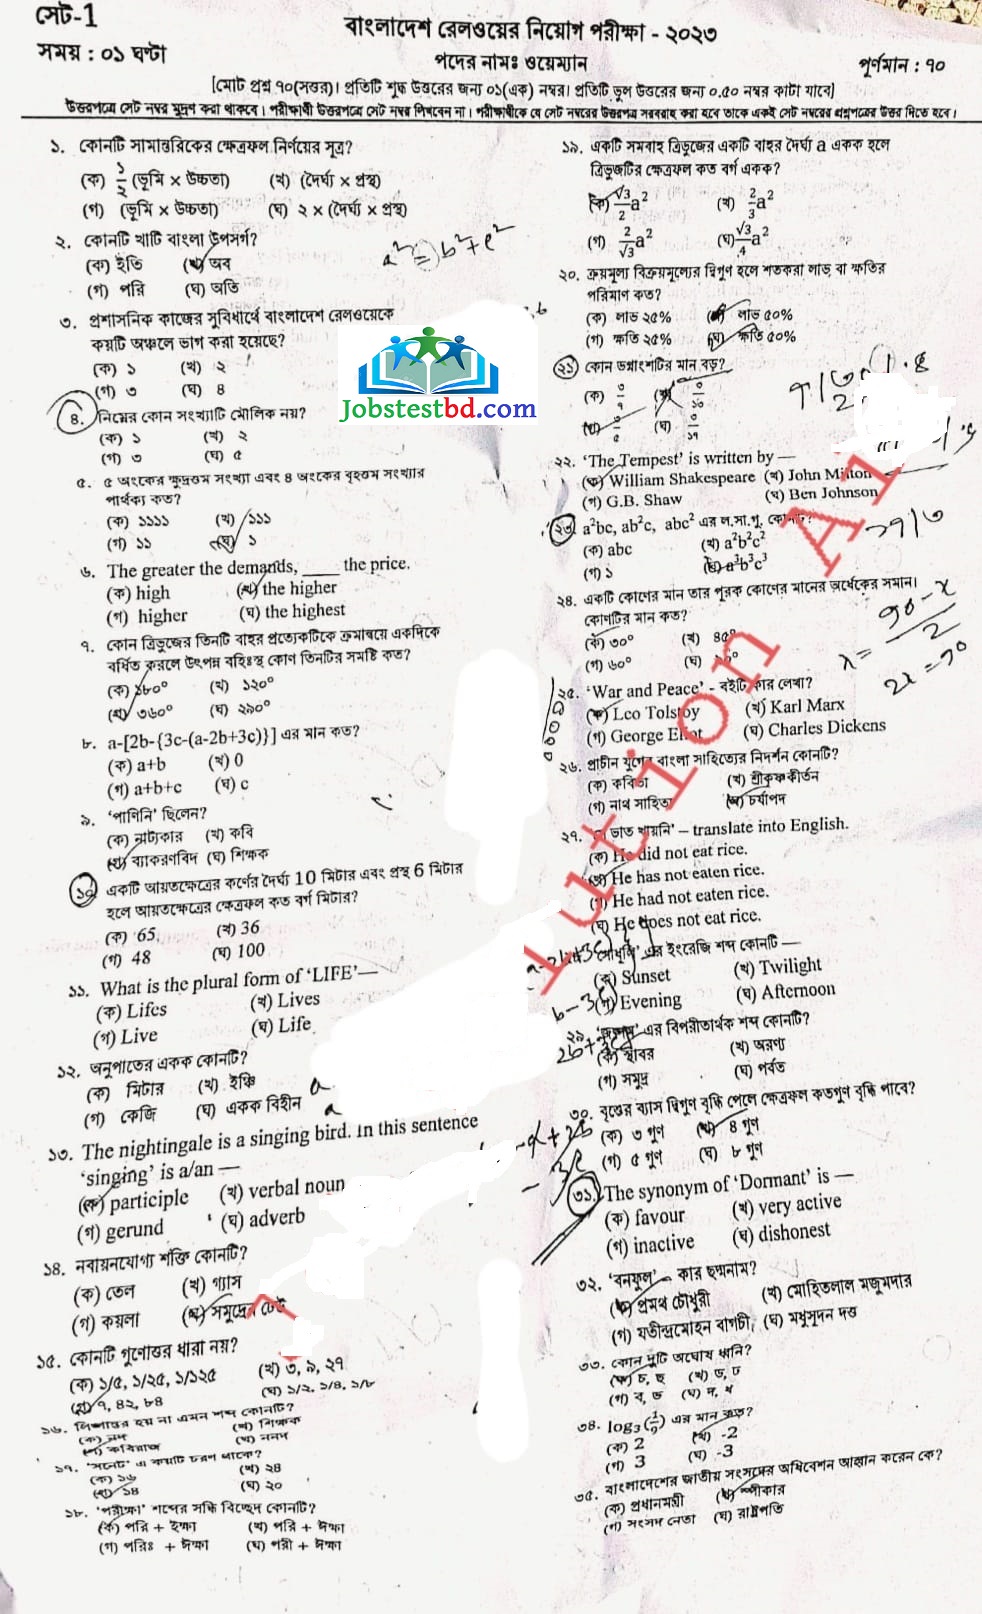 সেট-1
বাংলাদেশ রেলওয়ের নিয়োগ পরীক্ষা - ২০২৩
সময় : ০১ ঘণ্টা
পদের নামঃ ওয়েম্যান
পূর্ণমান : ৭০
[মোট প্রশ্ন ৭০(সত্তর)। প্রতিটি শুদ্ধ উত্তরের জন্য ০১(এক) নম্বর। প্রতিটি ভুল উত্তরের জন্য ০.৫০ নম্বর কাটা যাবে]
উত্তরপত্রে সেট নম্বর মুদ্রণ করা থাকবে। পরীক্ষার্থী উত্তরপত্রে সেট নম্বর লিখবেন না। পরীক্ষার্থীকে যে সেট নম্বরের উত্তরপত্র সরবরাহ করা হবে তাকে একই সেট নম্বরের প্রশ্নপত্রের উত্তর দিতে হবে।
১. কোনটি সামান্তরিকের ক্ষেত্রফল নির্ণয়ের সূত্র?
(ক) ১/২ (ভূমি × উচ্চতা) (খ) (দৈর্ঘ্য × প্রস্থ)
(গ) (ভূমি × উচ্চতা) (ঘ) ২ × (দৈর্ঘ্য × প্রস্থ)
২. কোনটি খাটি বাংলা উপসর্গ?
(ক) ইতি (খ) অব
(গ) পরি (ঘ) অতি
a² = b² + c²
৩. প্রশাসনিক কাজের সুবিধার্থে বাংলাদেশ রেলওয়েকে
কয়টি অঞ্চলে ভাগ করা হয়েছে?
(ক) ১ (খ) ২
(গ) ৩ (ঘ) ৪
Jobstestbd.com
৪. নিম্নের কোন সংখ্যাটি মৌলিক নয়?
(ক) ১ (খ) ২
(গ) ৩ (ঘ) ৫
৫. ৫ অংকের ক্ষুদ্রতম সংখ্যা এবং ৪ অংকের বৃহত্তম সংখ্যার
পার্থক্য কত?
(ক) ১১১১ (খ) ১১১
(গ) ১১ (ঘ) ১
৬. The greater the demands, ____ the price.
(ক) high (খ) the higher
(গ) higher (ঘ) the highest
৭. কোন ত্রিভুজের তিনটি বাহুর প্রত্যেকটিকে ক্রমান্বয়ে একদিকে
বর্ধিত করলে উৎপন্ন বহিঃস্থ কোণ তিনটির সমষ্টি কত?
(ক) ১৮০° (খ) ১২০°
(গ) ৩৬০° (ঘ) ২৯০°
৮. a-[2b-{3c-(a-2b+3c)}] এর মান কত?
(ক) a+b (খ) 0
(গ) a+b+c (ঘ) c
৯. ‘পাণিনি’ ছিলেন?
(ক) নাট্যকার (খ) কবি
(গ) ব্যাকরণবিদ (ঘ) শিক্ষক
১০ একটি আয়তক্ষেত্রের কর্ণের দৈর্ঘ্য 10 মিটার এবং প্রস্থ 6 মিটার
হলে আয়তক্ষেত্রের ক্ষেত্রফল কত বর্গ মিটার?
(ক) 65 (খ) 36
(গ) 48 (ঘ) 100
১১. What is the plural form of ‘LIFE’—
(ক) Lifes (খ) Lives
(গ) Live (ঘ) Life
১২. অনুপাতের একক কোনটি?
(ক) মিটার (খ) ইঞ্চি
(গ) কেজি (ঘ) একক বিহীন
১৩. The nightingale is a singing bird. In this sentence
‘singing’ is a/an —
(ক) participle (খ) verbal noun
(গ) gerund (ঘ) adverb
১৪. নবায়নযোগ্য শক্তি কোনটি?
(ক) তেল (খ) গ্যাস
(গ) কয়লা (ঘ) সমুদ্রের ঢেউ
১৫. কোনটি গুণোত্তর ধারা নয়?
(ক) ১/৫, ১/২৫, ১/১২৫ (খ) ৩, ৯, ২৭
(গ) ৭, ৪২, ৮৪ (ঘ) ১/২, ১/৪, ১/৮
১৬. লিঙ্গান্তর হয় না এমন শব্দ কোনটি?
(খ) শিক্ষক
(গ) কবিরাজ (ঘ) ননদ
১৭. ‘সনেট’ এ কয়টি চরণ থাকে?
(ক) ১৬ (খ) ২৪
(গ) ১৪ (ঘ) ২০
১৮. ‘পরীক্ষা’ শব্দের সন্ধি বিচ্ছেদ কোনটি?
(ক) পরি + ইক্ষা (খ) পরি + ঈক্ষা
(গ) পরিঃ + ঈক্ষা (ঘ) পরী + ঈক্ষা
১৯. একটি সমবাহু ত্রিভুজের একটি বাহুর দৈর্ঘ্য a একক হলে
ত্রিভুজটির ক্ষেত্রফল কত বর্গ একক?
(ক) √3/2 a² (খ) 2/3 a²
(গ) 2/√3 a² (ঘ) √3/4 a²
২০. ক্রয়মূল্য বিক্রয়মূল্যের দ্বিগুণ হলে শতকরা লাভ বা ক্ষতির
পরিমাণ কত?
(ক) লাভ ২৫% (খ) লাভ ৫০%
(গ) ক্ষতি ২৫% (ঘ) ক্ষতি ৫০%
২১ কোন ভগ্নাংশটির মান বড়?
(ক) ৩/৭ (খ) ৩/১০
(গ) ৩/৫ (ঘ) ৩/১৭
২২. ‘The Tempest’ is written by —
(ক) William Shakespeare (খ) John Milton
(গ) G.B. Shaw (ঘ) Ben Johnson
২৩ a²bc, ab²c, abc² এর ল.সা.গু. কোনটি?
(ক) abc (খ) a²b²c²
(গ) ১ (ঘ) a³b³c³
২৪. একটি কোণের মান তার পূরক কোণের মানের অর্ধেকের সমান।
কোণটির মান কত?
(ক) ৩০° (খ) ৪৫°
(গ) ৬০° (ঘ)
x = 90 - x / 2
২৫. ‘War and Peace’ - বইটি কার লেখা?
(ক) Leo Tolstoy (খ) Karl Marx
(গ) George Eliot (ঘ) Charles Dickens
২৬. প্রাচীন যুগের বাংলা সাহিত্যের নিদর্শন কোনটি?
(ক) কবিতা (খ) শ্রীকৃষ্ণকীর্তন
(গ) নাথ সাহিত্য (ঘ) চর্যাপদ
২৭. ভাত খায়নি’ – translate into English.
(ক) He did not eat rice.
(খ) He has not eaten rice.
(গ) He had not eaten rice.
(ঘ) He does not eat rice.
‘গোধূলি’ এর ইংরেজি শব্দ কোনটি —
(ক) Sunset (খ) Twilight
(গ) Evening (ঘ) Afternoon
২৯. এর বিপরীতার্থক শব্দ কোনটি?
(ক) স্থাবর (খ) অরণ্য
(গ) সমুদ্র (ঘ) পর্বত
৩০. বৃত্তের ব্যাস দ্বিগুণ বৃদ্ধি পেলে ক্ষেত্রফল কতগুণ বৃদ্ধি পাবে?
(ক) ৩ গুণ (খ) ৪ গুণ
(গ) ৫ গুণ (ঘ) ৮ গুণ
৩১. The synonym of ‘Dormant’ is —
(ক) favour (খ) very active
(গ) inactive (ঘ) dishonest
৩২. ‘বনফুল’ - কার ছদ্মনাম?
(ক) প্রমথ চৌধুরী (খ) মোহিতলাল মজুমদার
(গ) যতীন্দ্রমোহন বাগচী, (ঘ) মধুসূদন দত্ত
৩৩. কোন দুটি অঘোষ ধ্বনি?
(ক) চ, ছ (খ) ড, ঢ
(গ) ব, ভ (ঘ) দ, ধ
৩৪. log₃(1/9) এর মান কত?
(ক) 2 (খ) -2
(গ) 3 (ঘ) -3
৩৫. বাংলাদেশের জাতীয় সংসদের অধিবেশন আহ্বান করেন কে?
(ক) প্রধানমন্ত্রী (খ) স্পীকার
(গ) সংসদ নেতা (ঘ) রাষ্ট্রপতি